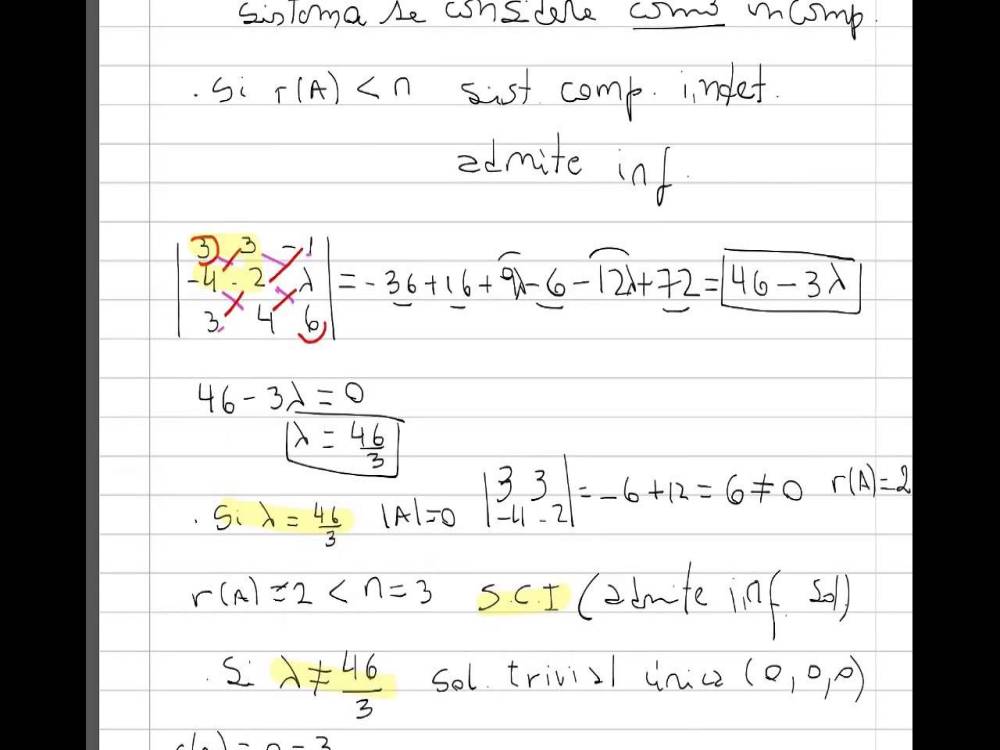 sistema se considere como incomp.
. Si r(A) < n sist. comp. indet.
admite inf.
| 3 3 -1 |
| -4 -2 λ | = -36+16+9λ-6-12λ+72 = 46-3λ
| 3 4 6 |
46-3λ=0
λ = 46/3
. Si λ = 46/3 |A|=0 |3 3; -4 -2| = -6+12 = 6≠0 r(A)=2
r(A)=2 < n=3 S.C.I (admite inf. sol)
. Si λ ≠ 46/3 sol. trivial única (0,0,0)
r(A) = n = 3